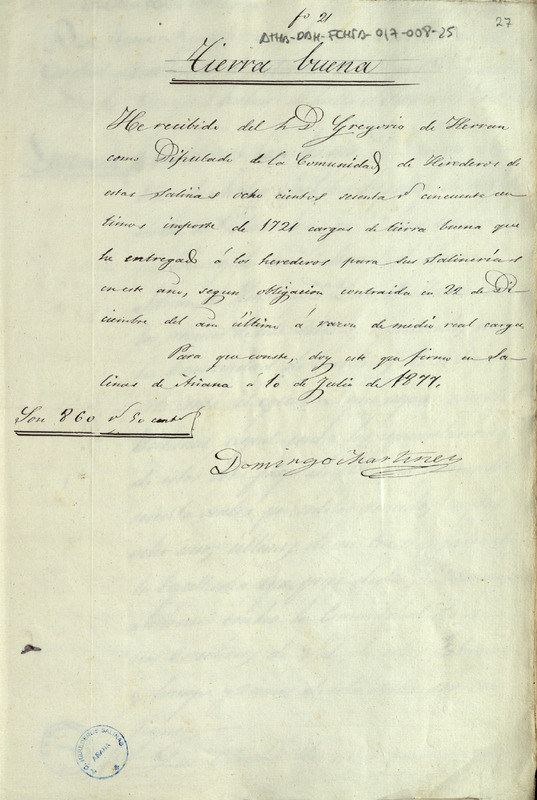 fo 21
27
ATHA-DAH-FCHSA-017-008-25
Tierra buena
He recibido del S. D. Gregorio de Herran
como Diputado de la Comunidad de Herederos de
estas Salinas ocho cientos sesenta rs cincuenta cen
timos importe de 1721 cargas de tierra buena que
he entregado á los herederos para sus Salinerías
en este año, segun obligacion contraida en 22 de Di
ciembre del año último á razon de medio real carga.
Para que conste, doy este que firmo en Sa
linas de Añana á 10 de Julio de 1877.
Son 860 rs 50 cents
Domingo Martinez
SALINAS
AÑANA